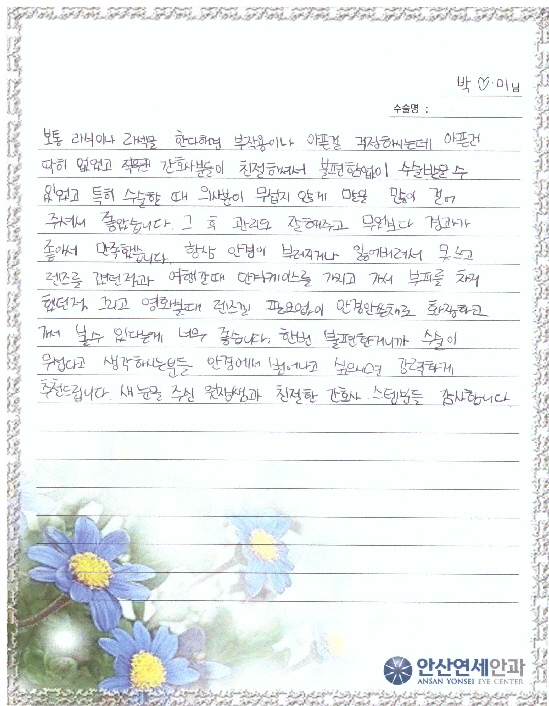 박♡미님
수술명 :
보통 라식이나 라섹을 한다하면 부작용이나 아픈걸 걱정하시는데 아픈건
따히 없었고 간호사분들이 친절하셔서 불편함없이 수술받을 수
있었고 특히 수술할 때 의사분이 무섭지 않게 말을 많이 걸어
주셔서 좋았습니다. 그 후 관리도 잘해주고 무엇보다 결과가
좋아서 만족했습니다. 항상 안경이 부러지거나 잃어버려서 못쓰고
렌즈를 꼈던적과 여행갈때 안경케이스를 가지고 가서 부피를 차지
했던적 그리고 영화볼때 렌즈낄 필요없이 안경안쓴채로 화장하고
가서 볼수 있다는게 너무 좋습니다. 한번 불편한거니까 수술이
무섭다고 생각하시는분들 안경에서 벗어나고 싶으시면 강력하게
추천드립니다. 새눈을 주신 원장쌤과 친절한 간호사 스텝분들 감사합니다
안산연세안과
ANSAN YONSEI EYE CENTER